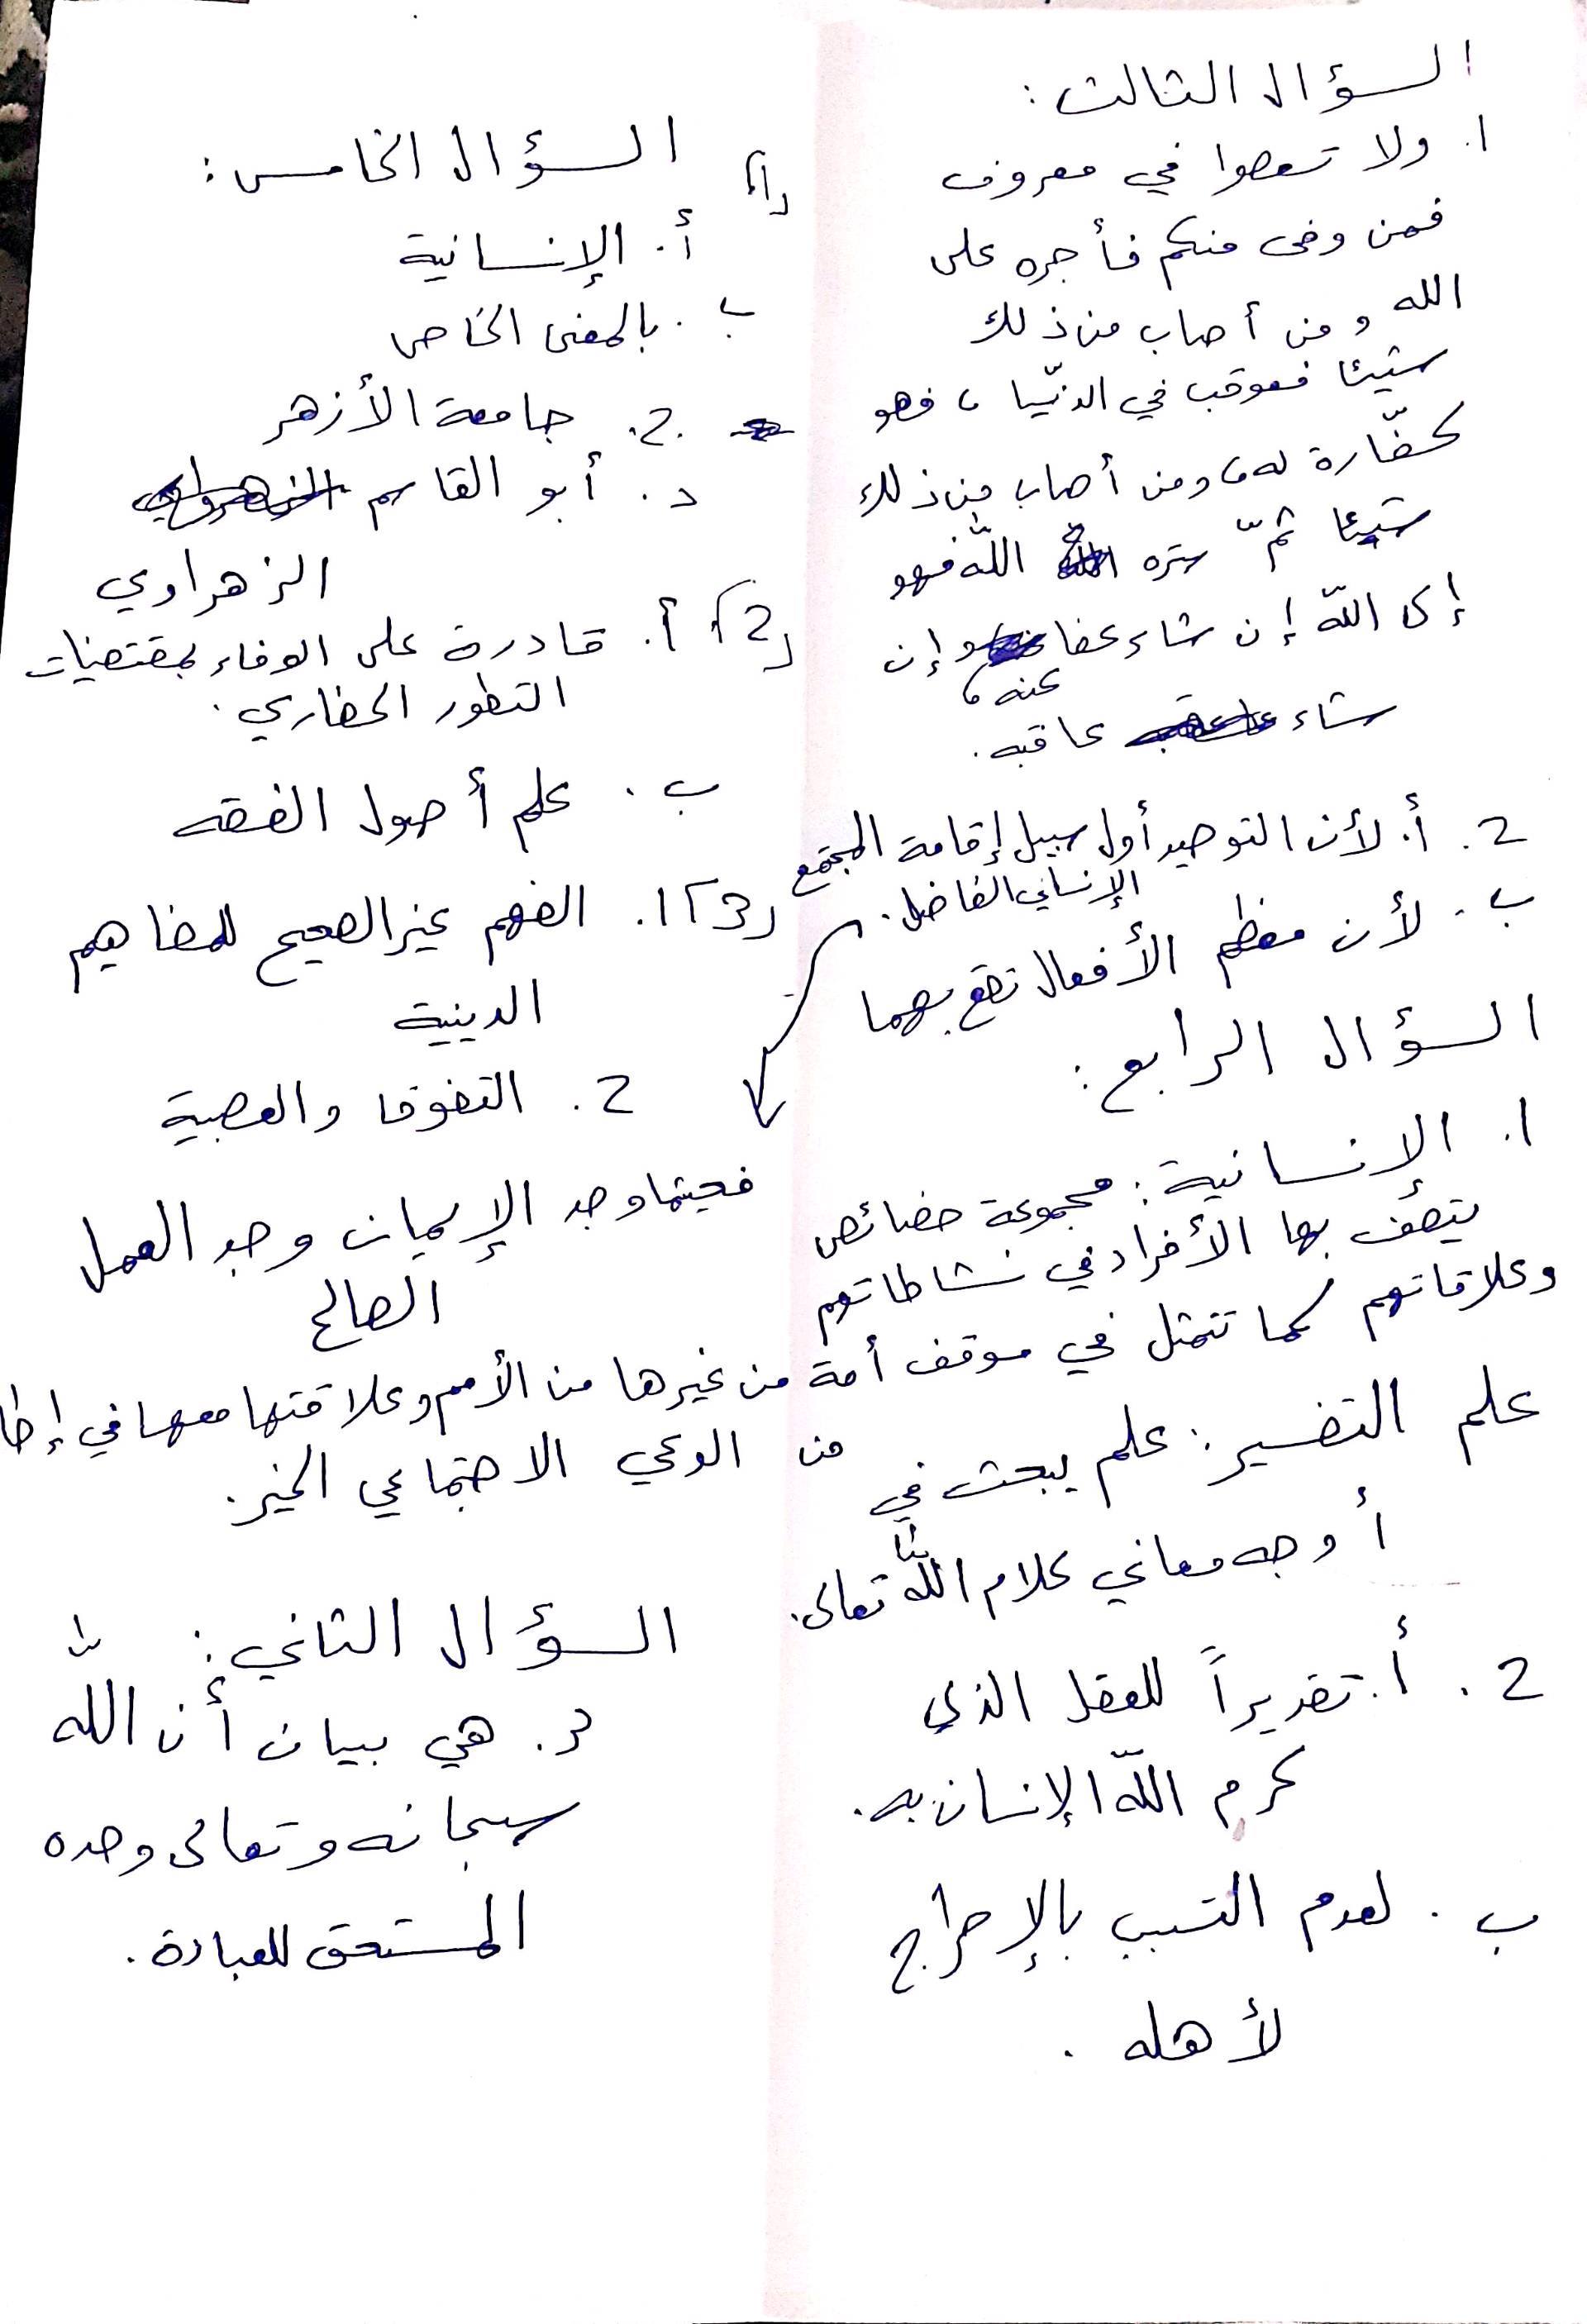 السؤال الثالث:
١. ولا تعصوا في معروف
فمن وفى منكم فأجره على
الله ومن أصاب من ذلك
شيئا فعوقب في الدنّيا، فهو
كفّارة له، ومن أصاب من ذلك
شيئا ثمّ ستره اللّه فهو
إلى اللّه إن شاء عفا عنه، وإن
شاء عاقبه.
2. أ. لأن التوحيد أول سبيل إقامة المجتمع
الإنساني الفاضل.
فحيثما وجد الإيمان وجد العمل
الصالح
ب. لأن معظم الأفعال تقع بهما
السؤال الرابع:
١. الإنسانية: مجموعة خصائص
يتصف بها الأفراد في نشاطاتهم
وعلاقاتهم كما تتمثل في موقف أمة من غيرها من الأمم وعلاقتها معها في إطا
من الوعي الاجتماعي الخير.
علم التفسير: علم يبحث في
أوجه معاني كلام اللّه تعالى.
2. أ. تقديراً للعقل الذي
كرم اللّه الإنسان به.
ب. لعدم التسبب بالإحراج
لأهله.
السؤال الخامس:
أ. الإنسانية
ب. بالمعنى الخاص
2. جامعة الأزهر
د. أبو القاسم
الزهراوي
(2 أ. قادرة على الوفاء بمقتضيات
التطور الحضاري.
ب. علم أصول الفقه
(3 ١. الفهم غير الصحيح للمفاهيم
الدينية
2. التفوق والعصبية
السؤال الثاني:
د. هي بيان أن اللّه
سبحانه وتعالى وحده
المستحق للعبادة.